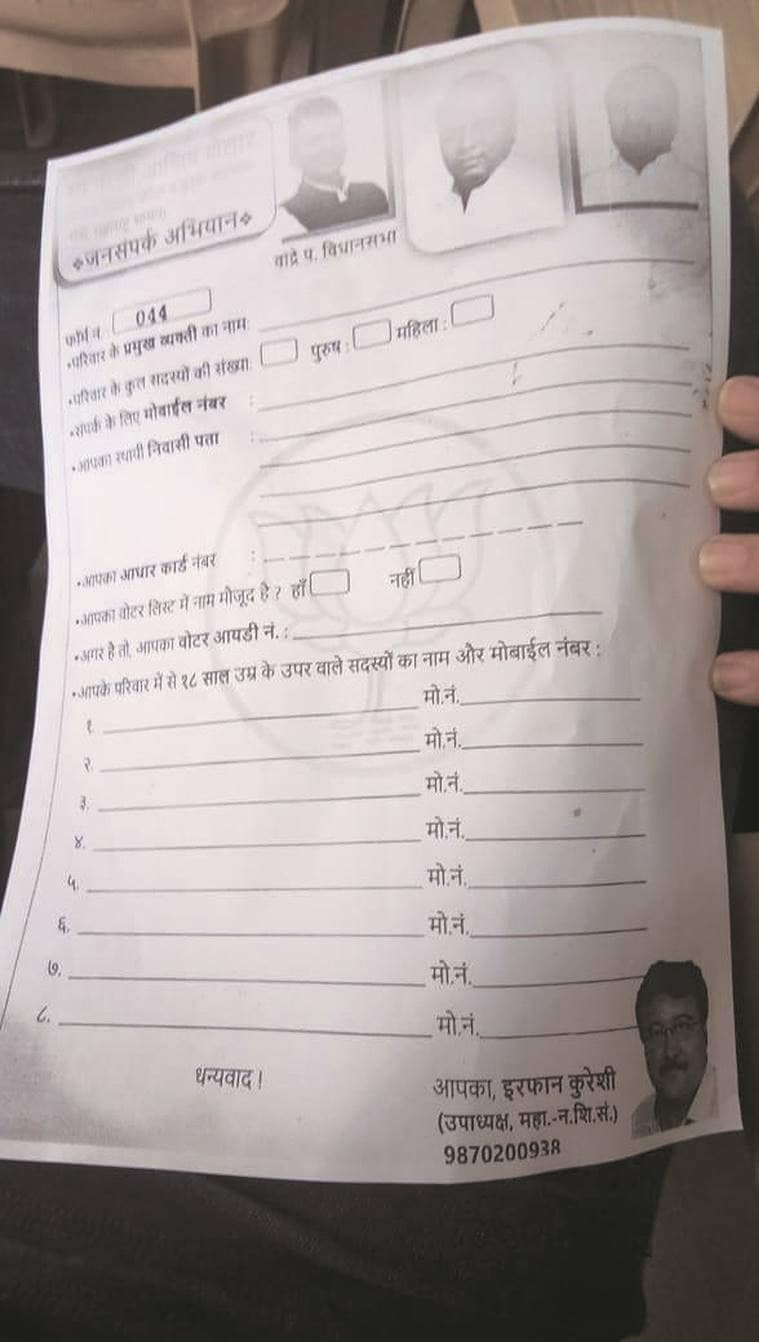 ❖जनसंपर्क अभियान❖
वांद्रे प. विधानसभा
फॉर्म नं. 044
•परिवार के प्रमुख व्यक्ती का नाम:
•परिवार के कुल सदस्यों की संख्या: पुरुष : महिला :
•संपर्क के लिए मोबाईल नंबर :
•आपका स्थायी निवासी पता :
•आपका आधार कार्ड नंबर :
•आपका वोटर लिस्ट में नाम मौजूद है ? हाँ नहीं
•अगर है तो, आपका वोटर आयडी नं. :
•आपके परिवार में से १८ साल उम्र के उपर वाले सदस्यों का नाम और मोबाईल नंबर :
१. मो.नं.
२. मो.नं.
३. मो.नं.
४. मो.नं.
५. मो.नं.
६. मो.नं.
७. मो.नं.
८. मो.नं.
धन्यवाद !
आपका, इरफान कुरेशी
(उपाध्यक्ष, महा.-न.शि.सं.)
9870200938